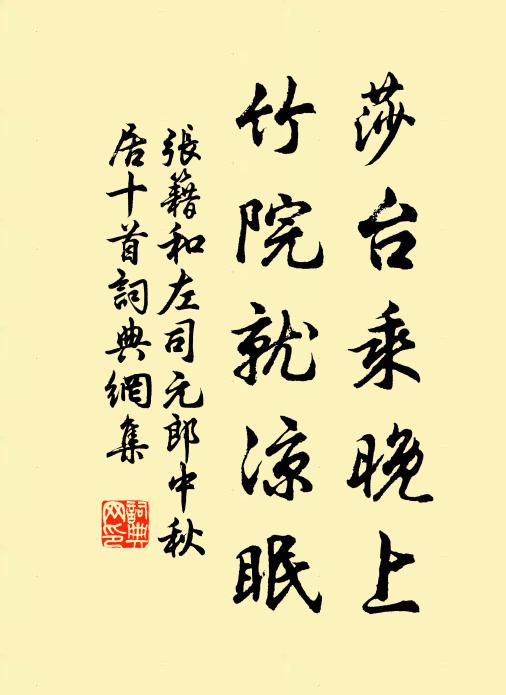 莎台乘晚上
竹院就凉眠
張籍和左司元郎中秋
居十首詞典網集
詞典
网印